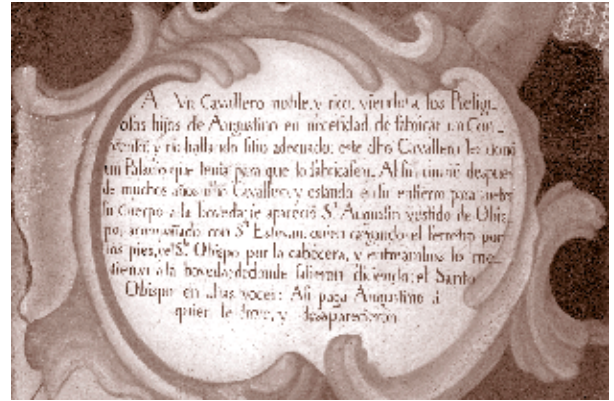 A Vn Cavallero noble, y rico, viendo a los Religi-
osos hijos de Augustino en necesidad de fabricar un Con-
vento, y no hallando sitio adecuado; este dho Cavallero les donó
un Palacio que tenia para que lo fabricasen. Al fin murió despues
de muchos años dho Cavallero, y estando en su entierro para meter
su Cuerpo a la boveda; se apareció Sn. Augustin vestido de Obis-
po, acompañado con Sn. Estevan, quien cargando el ferretro por
los pies, y el Sto. Obispo por la cabecera, y entrambos lo me-
tieron a la boveda; dedonde salieron diciendo; el Santo
Obispo en altas voces: Asi paga Augustino á
quien le sirve, y desaparecieron